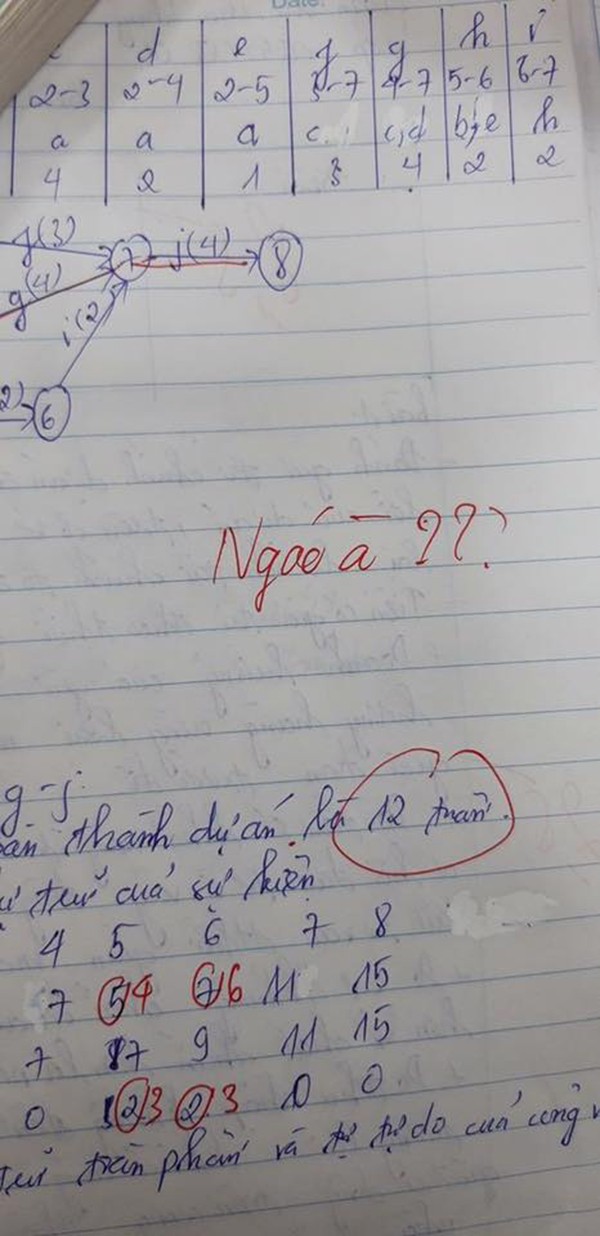 c d e f g h i
2-3 2-4 2-5 3-7 4-7 5-6 6-7
a a a c c,d b,e h
4 2 1 3 4 2 2
f(3) 7 j(4) 8
g(4)
i(2)
2) 6
Ngáo à ???
g-j
oàn thành dự án là 12 tuần.
trữ của sự kiện
4 5 6 7 8
7 5 4 7 6 11 15
7 7 9 11 15
0 2 3 2 3 0 0
trữ toàn phần và tự do của công